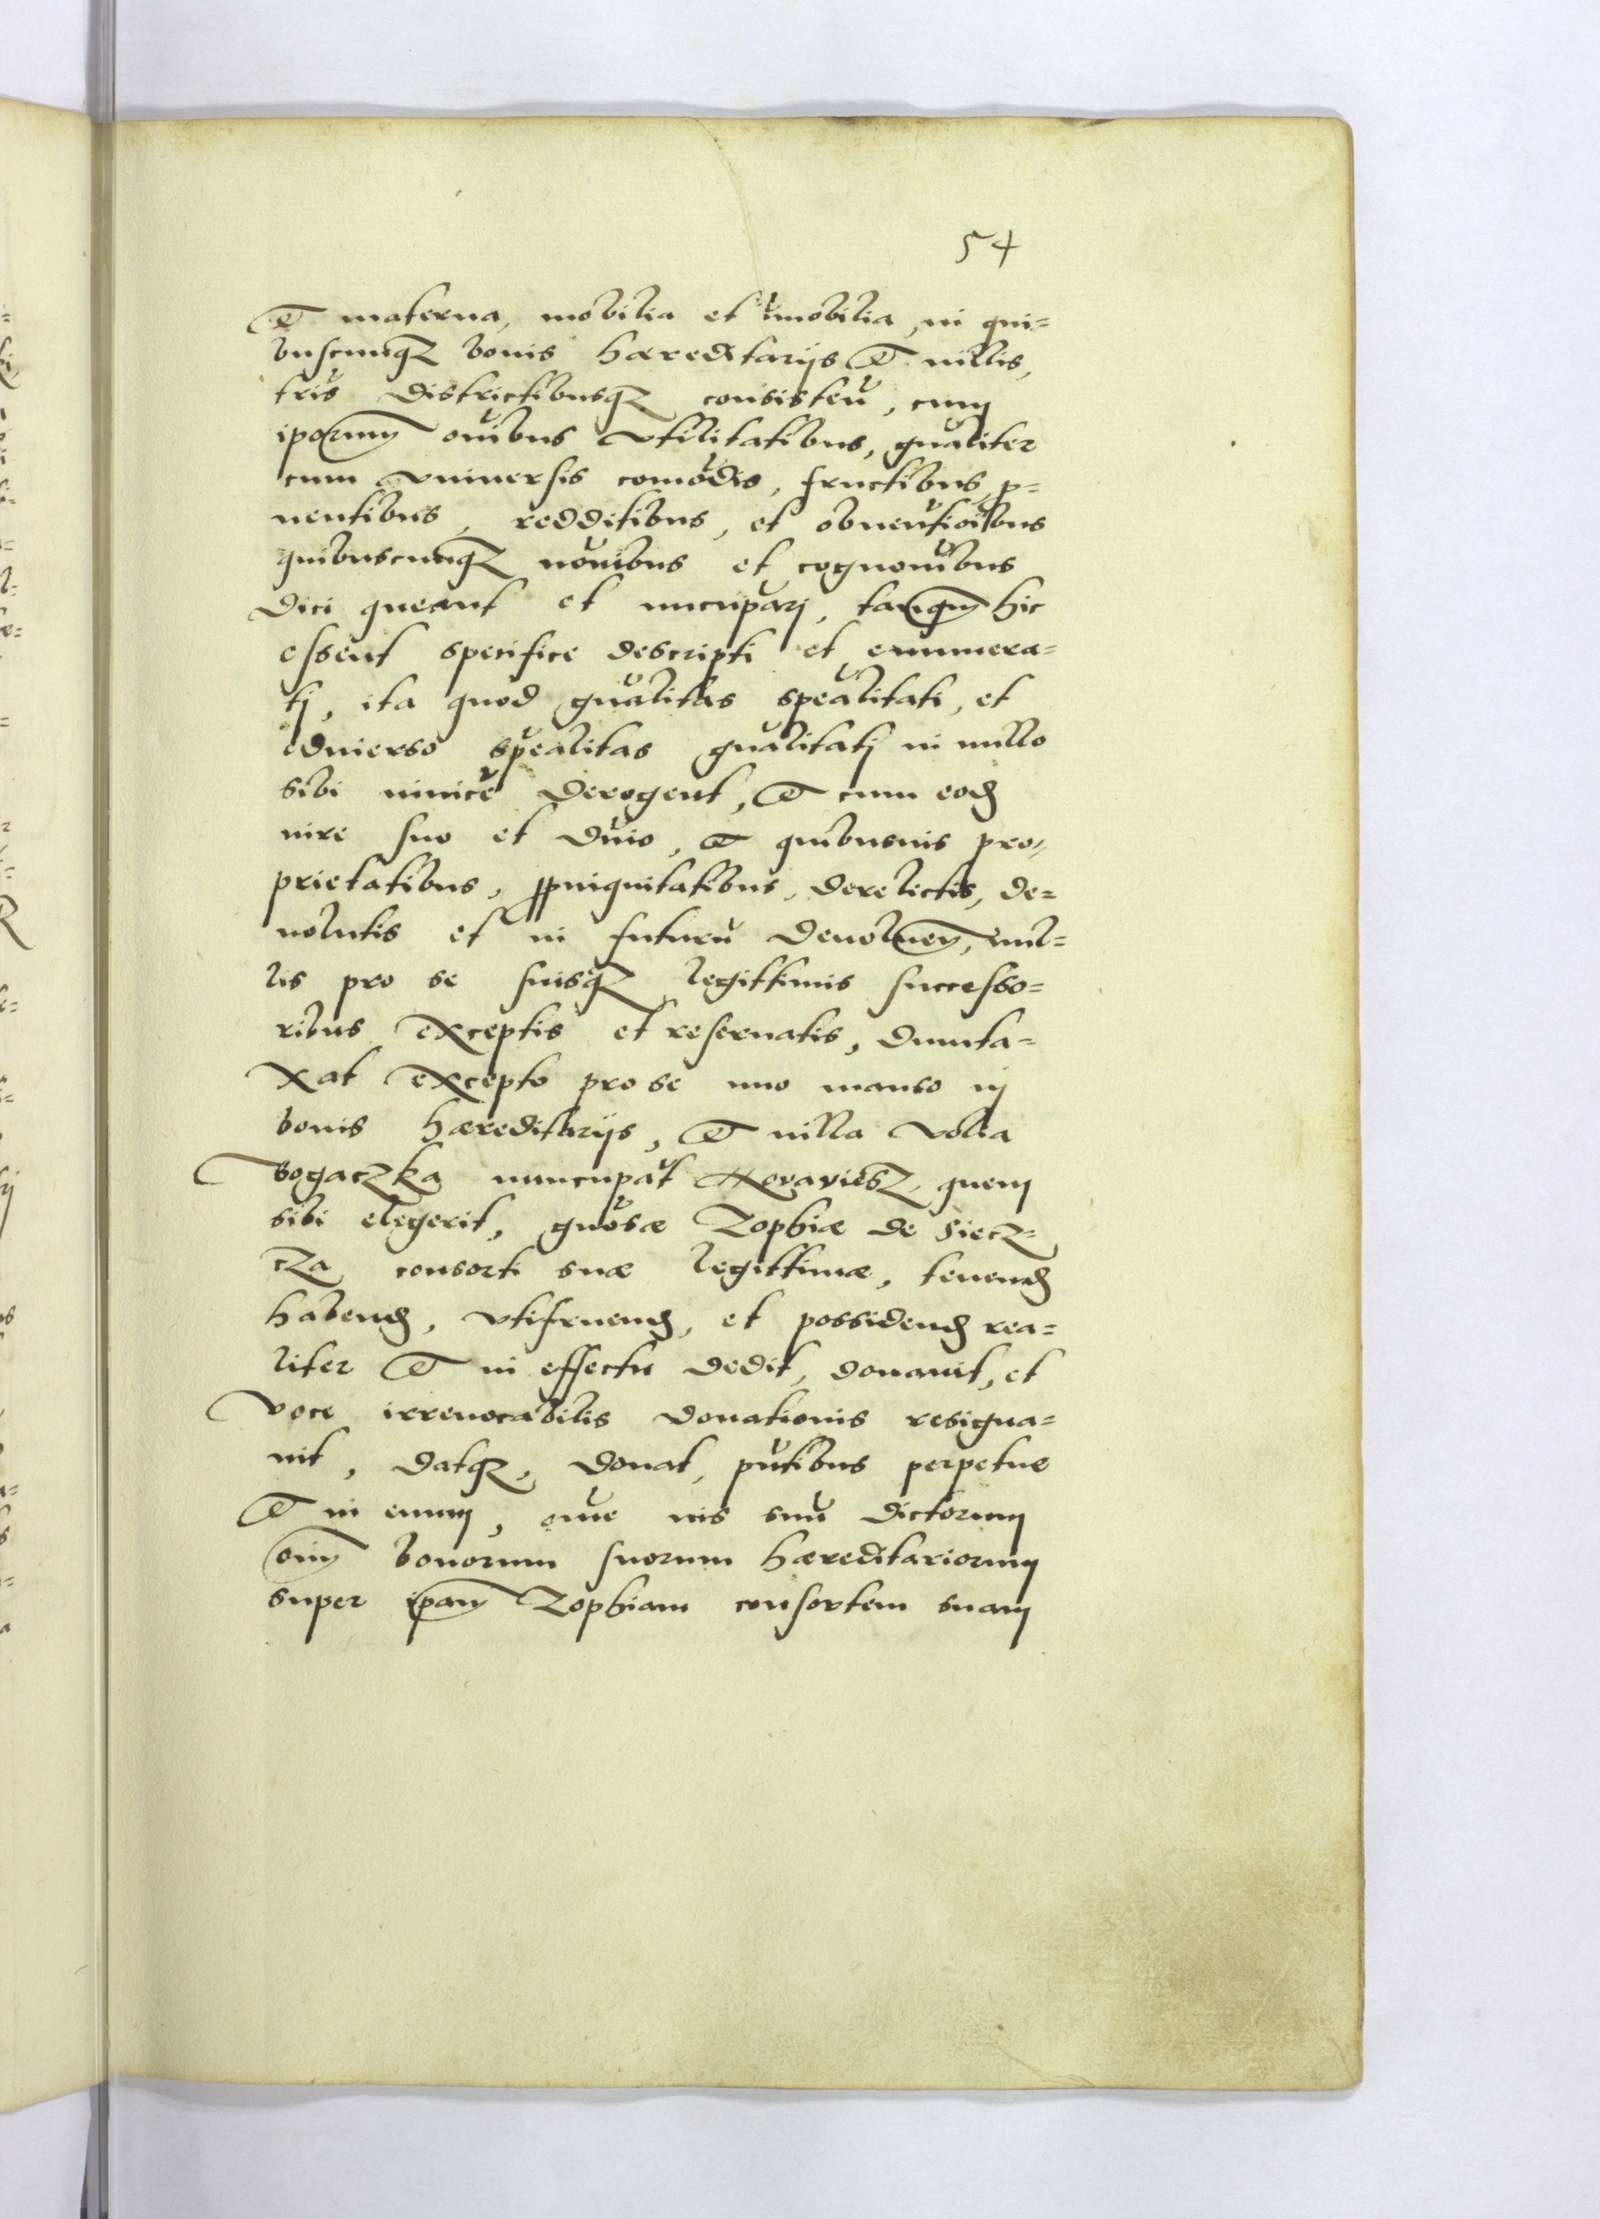 54
Et materna, mobilia et imobilia, in qui=
buscunqz bonis hæreditarijs Et villis,
tris districtibusqz consisteñ, cum
ipõrum oñibus vtilitatibus, gñaliter
cum vniversis comodis, fructibus, p=
uentibus, redditibus, et obuentioĩbus
quibuscunqz noĩibus et cognoĩbus
dici queant et nucupari, tanqm hic
essent specifice descripti et enumera=
tj, ita quod gñalitas spẽalitati, et
eduierso spẽalitas gñalitatj in nullo
sibi inuicẽ derogent, Et cum eod
iure suo et dñio, Et quibusuis pro=
prietatibus, ppinquitatibus, derelictis, de=
uolutis et in futurũ deuoluen, nul=
lis pro se suisqz legittimis successo=
ribus exceptis et reseruatis, dunta=
xat excepto pro se uno manso in
bonis hæreditarijs, Et villa Volia
Bogaczka nuncupat Moraviesz, quem
sibi elegerit, gñosæ Zophiæ de Siecz=
cza consorti suæ legittimæ, tenend
habend, vtifruend, et possidend rea=
liter Et in effectu dedit, donauit, et
voce irreuocabilis donationis resigna=
uit, datqz, donat, pñtibus perpetue
Et in euum, oñe ius suũ dictorum
oim bonorum suorum hæreditariorum
super ipam Zophiam consortem suam